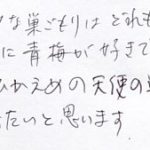 な巣ごもりは どれも
に 青梅が好きで
ひかえめの天使の
たいと思います